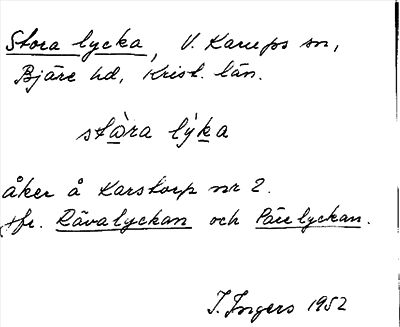 Stora lycka, V. Karups sn,
Bjäre hd, Krist. län.
stòra lýka
åker å Karstorp nr 2.
Jfr. Rävalyckan och Pärelyckan.
I. Ingers 1952